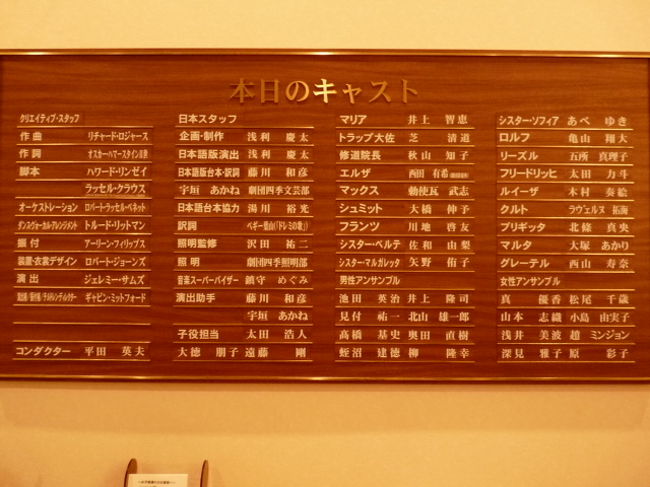 本日のキャスト
クリエイティブ・スタッフ
作曲 リチャード・ロジャース
作詞 オスカー・ハマースタインⅡ世
脚本 ハワード・リンゼイ
ラッセル・クラウス
オーケストレーション ロバート・ラッセル・ベネット
ダンス・ヴォーカル・アレンジメント トルード・リットマン
振付 アーリーン・フィリップス
装置・衣裳デザイン ロバート・ジョーンズ
演出 ジェレミー・サムズ
ギャビン・ミットフォード
コンダクター 平田 英夫
日本スタッフ
企画・制作 浅利 慶太
日本語版演出 浅利 慶太
日本語版台本・訳詞 藤川 和彦
宇垣 あかね 劇団四季文芸部
日本語台本協力 湯川 裕光
訳詞 ペギー葉山(「ドレミの歌」)
照明監修 沢田 祐二
照明 劇団四季照明部
音楽スーパーバイザー 鎮守 めぐみ
演出助手 藤川 和彦
宇垣 あかね
子役担当 太田 浩人
大徳 朋子 遠藤 剛
マリア 井上 智恵
トラップ大佐 芝 清道
修道院長 秋山 知子
エルザ 西田 有希
マックス 勅使瓦 武志
シュミット 大橋 伸予
フランツ 川地 啓友
シスター・ベルテ 佐和 由梨
シスター・マルガレッタ 矢野 侑子
男性アンサンブル
池田 英治 井上 隆司
見付 祐一 北山 雄一郎
髙橋 基史 奥田 直樹
蛭沼 建徳 柳 隆幸
シスター・ソフィア あべ ゆき
ロルフ 亀山 翔大
リーズル 五所 真理子
フリードリッヒ 太田 力斗
ルイーザ 木村 奏絵
クルト ラヴェルヌ 拓海
ブリギッタ 北條 真央
マルタ 大塚 あかり
グレーテル 西山 寿奈
女性アンサンブル
真 優香 松尾 千歳
山本 志織 小島 由実子
浅井 美波 趙 ミンジョン
深見 雅子 原 彩子